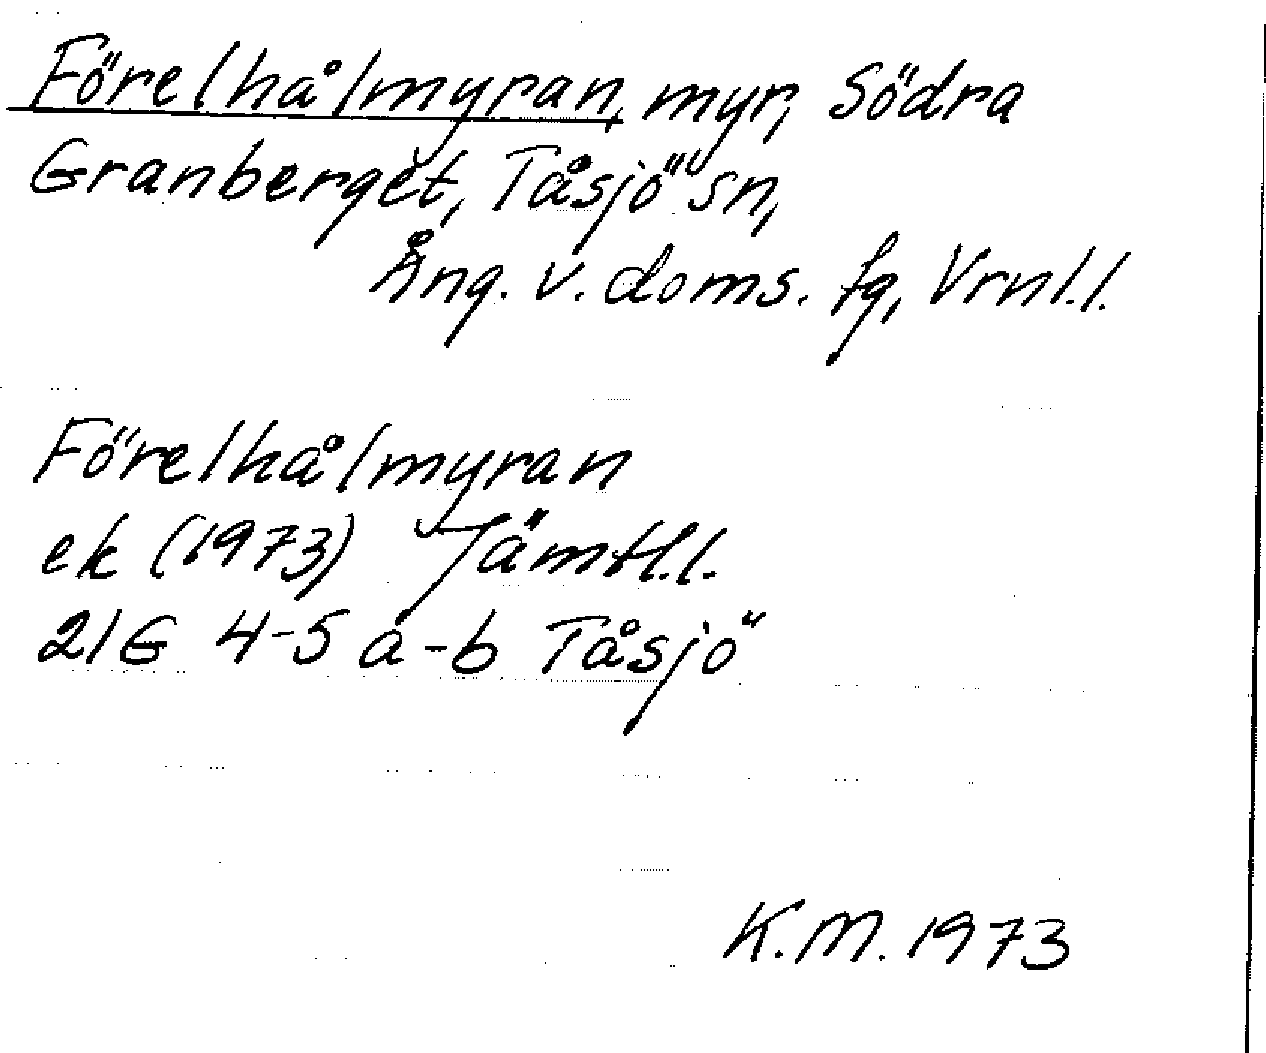 Förelhålmyran, myr, Södra
Granberget, Tåsjö sn,
Ång. v. doms. fg, Vrnl.l.
Förelhålmyran
ek (1973) Jämtl.l.
21G 4-5 a-b Tåsjö
K.M. 1973